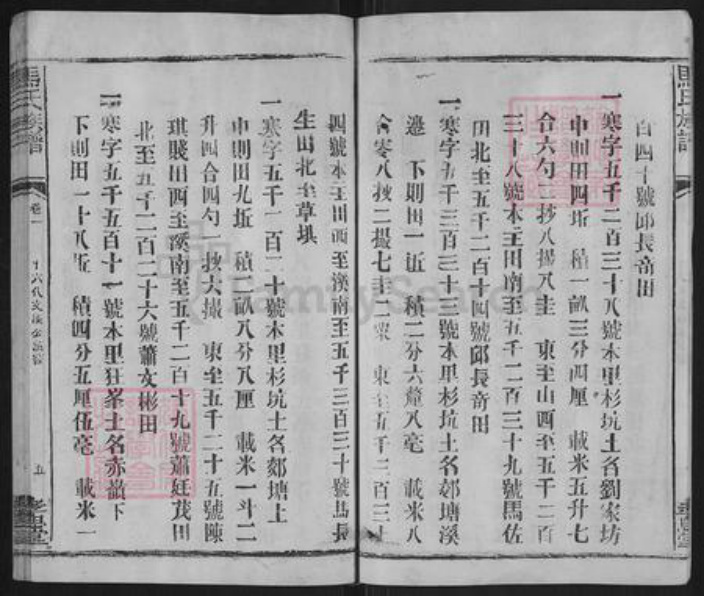 馬氏族譜
百四十號邱長奇田
一寒字五千二百三十八號本里杉坑土名劉家坊
中則田四坵 積一畝三分四厘 載米五升七
合六勺二抄八撮八圭 東至山西至五千二百
三十八號本主田南至五千二百三十九號馬佐
田北至五千二百十四號邱長奇田
一寒字五千三百三十二號本里杉坑土名郊塘溪
邊 下則田一坵 積二分六釐八毫 載米八
合零八抄二撮七圭二粟 東至五千三百三十
四號本主田西至溪南至五千三百三十號馬長
生田北至草垻
一寒字五千一百二十號本里杉坑土名郊塘上
中則田九坵 積一畝八分八厘 載米一斗二
升四合四勺一抄六撮 東至五千二十五號陳
琪賤田西至溪南至五千二百十九號蕭廷茂田
北至五千二百二十六號蕭文彬田
一寒字五千五百十一號本里狂峯土名赤嶺下
下則田一十八坵 積四分五厘伍毫 載米一
馬氏族譜
卷一
五